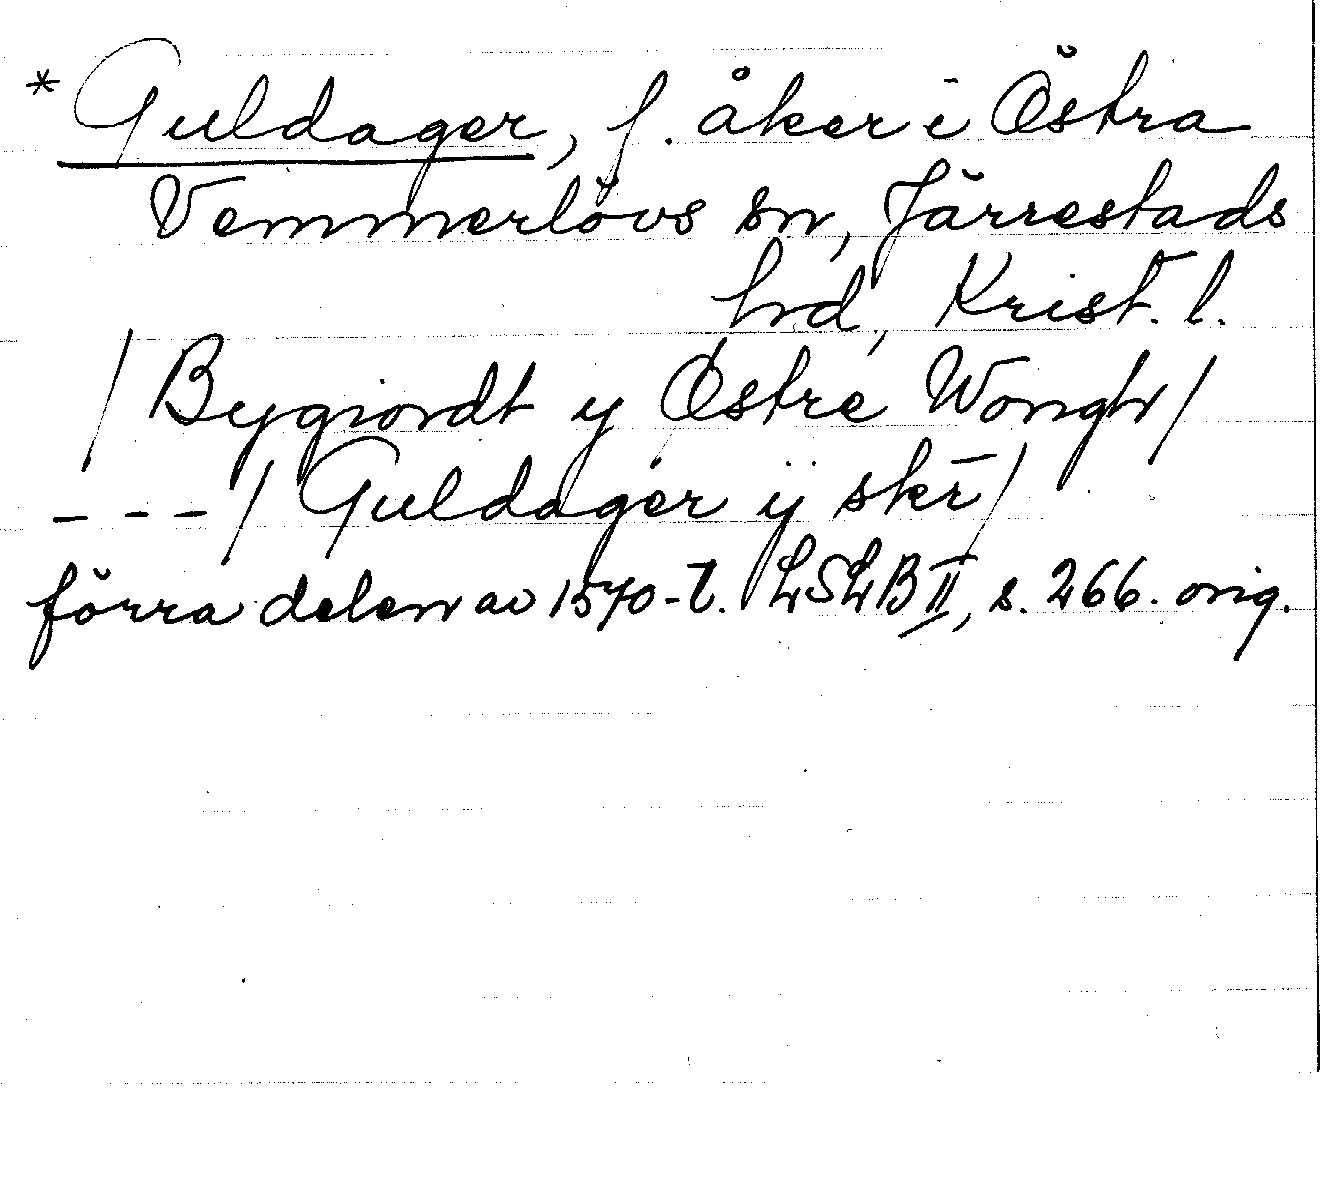 * Guldager, f. åker i Östra
Vemmerlövs sn, Järrestads
hd, Krist. l.
/ Bygiordt y Østre Wongh /
- - - / Guldager ÿ skr̄ /
förra delen av 1570-t. LSLB II, s. 266. orig.